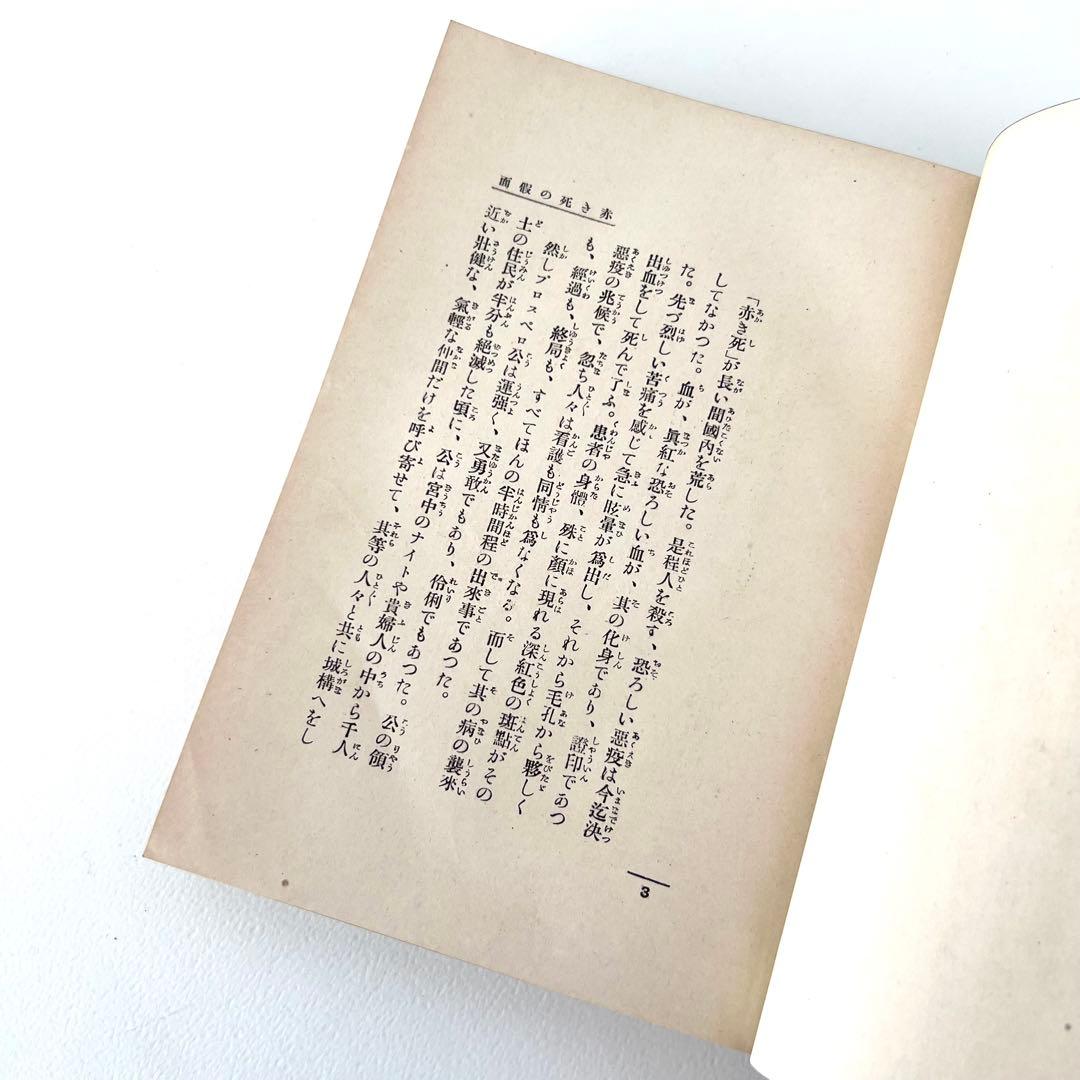 赤き死の假面
「赤き死」が長い間國内を荒した。是程人を殺す、恐ろしい惡疫は今迄決
してなかつた。血が、眞紅な恐ろしい血が、其の化身であり、證印であつ
た。先づ烈しい苦痛を感じて急に眩暈が爲出し、それから毛孔から夥しく
出血をして死んで了ふ。患者の身體、殊に顔に現れる深紅色の斑點がその
惡疫の兆候で、忽ち人々は看護も同情も爲なくなる。而して其の病の襲來
も、經過も、終局も、すべてほんの半時間程の出來事であつた。
然しプロスペロ公は運强く、又勇敢でもあり、伶俐でもあつた。公の領
土の住民が半分も絶滅した頃に、公は宮中のナイトや貴婦人の中から千人
近い壯健な、氣輕な仲間だけを呼び寄せて、其等の人々と共に城構へをし
3